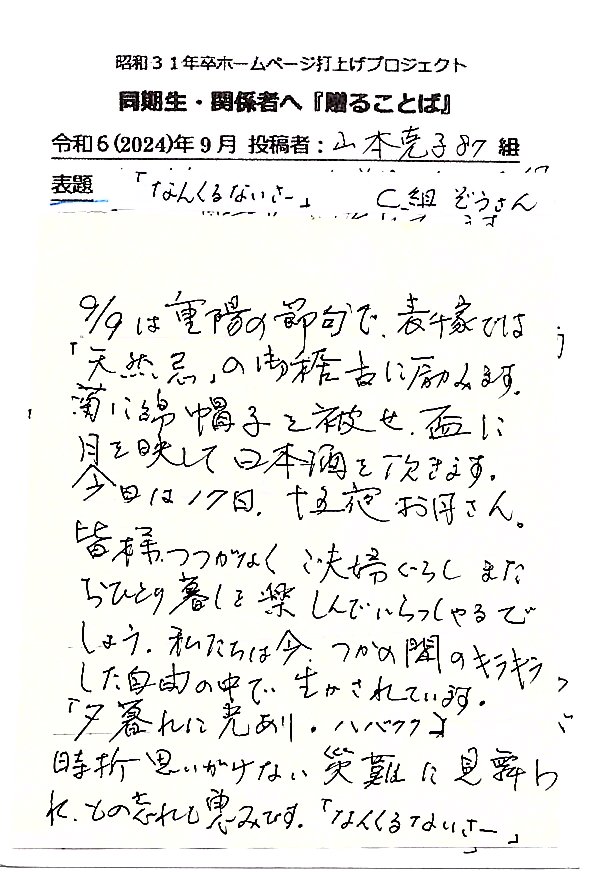 昭和31年卒ホームページ打上げプロジェクト
同期生・関係者へ『贈ることば』
令和6(2024)年9月 投稿者：山本堯子87 組
表題 「なんくるないさー」 C組 ぞうさん
9/9は重陽の節句で、表千家では
「天然忌」の御稽古に励みます。
菊に綿帽子を被せ、盃に
月を映して日本酒を頂きます。
今日は17日、十五夜お月さん。
皆様、つつがなく ご夫婦ぐらし また
おひとり暮しを楽しんでいらっしゃるで
しょう。私たちは今、つかの間のキラキラ
した自由の中で生かされています。
「夕暮れに光あり。ハバクク」
時折思いがけない災難に見舞わ
れ、もの忘れも恵みです。「なんくるないさー」